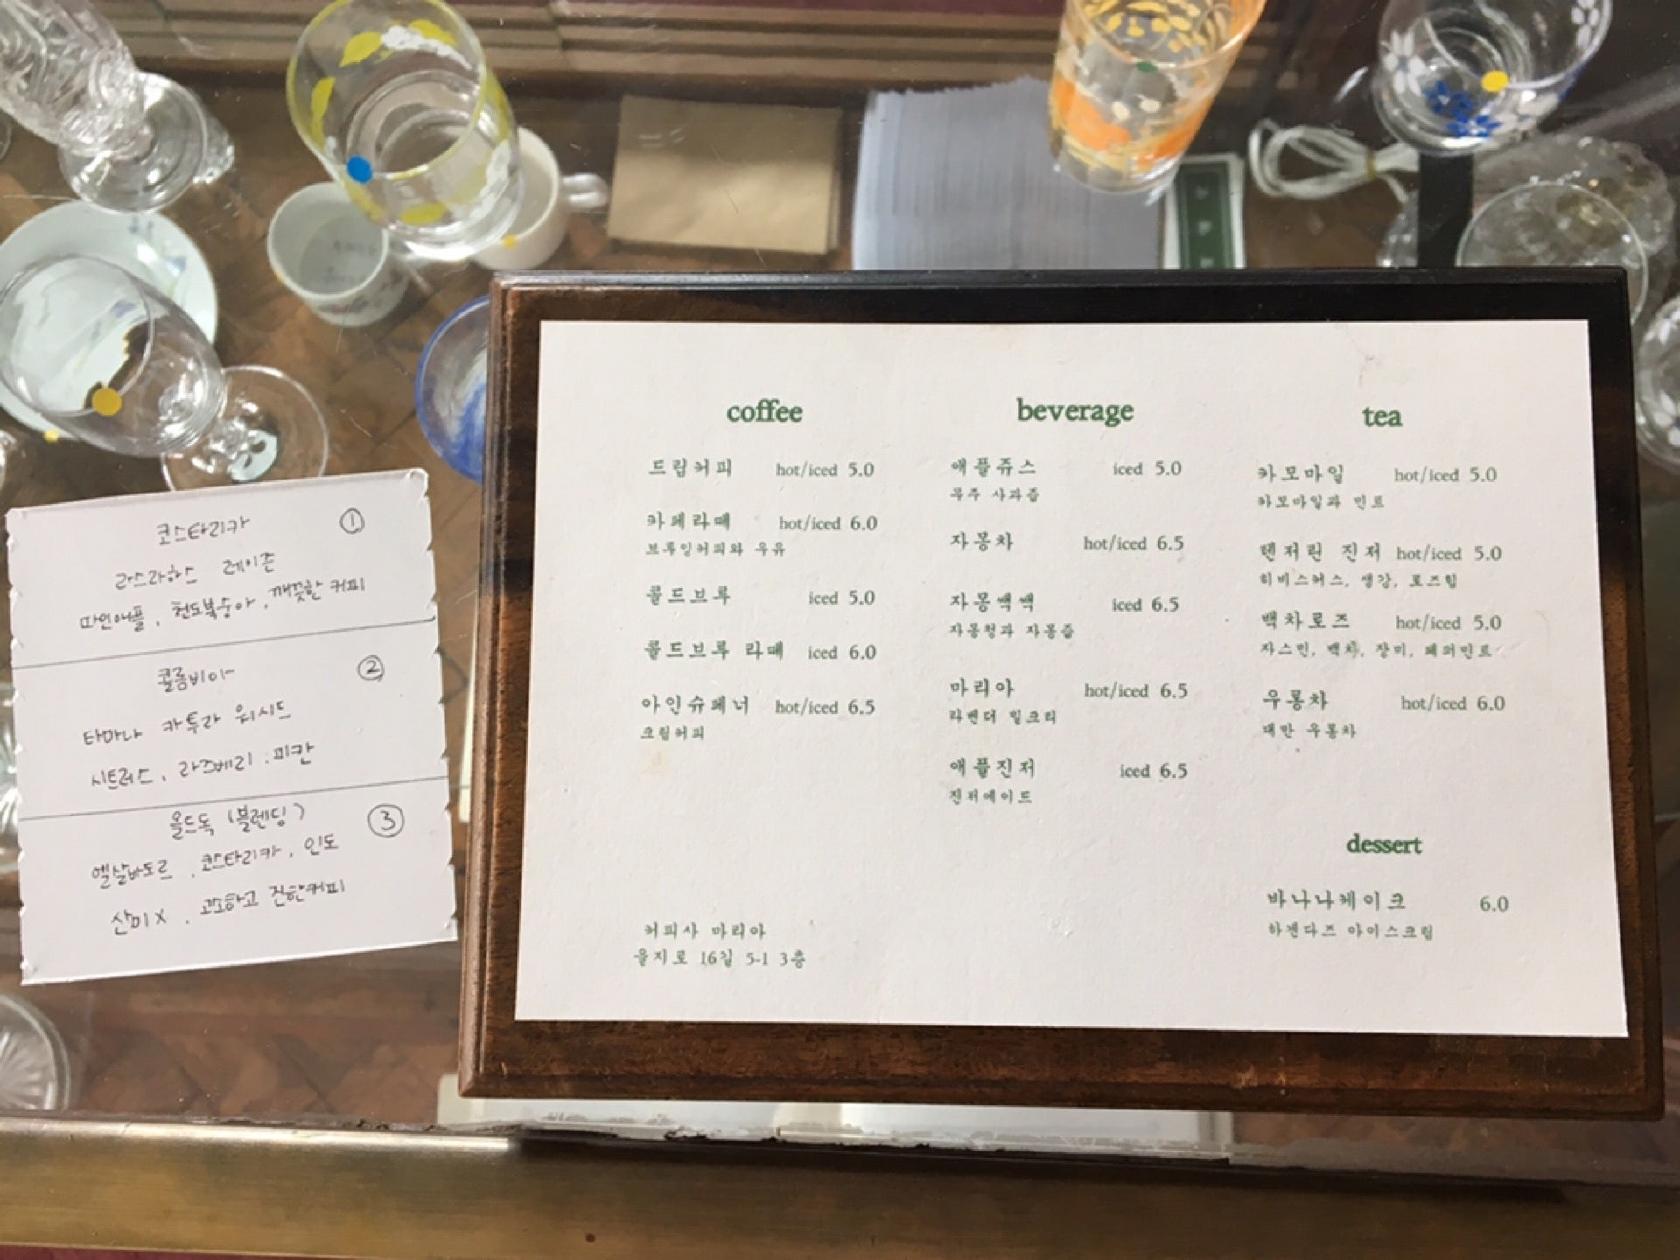 코스타리카 ①
라스라하스 레이즌
파인애플, 천도복숭아, 깨끗한 커피
콜롬비아 ②
타마나 카투라 워시드
시트러스, 라즈베리, 피칸
올드독 (블렌딩) ③
엘살바도르, 코스타리카, 인도
산미X, 고소하고 진한커피
coffee
드립커피 hot/iced 5.0
카페라떼 hot/iced 6.0
브루잉커피와 우유
콜드브루 iced 5.0
콜드브루 라떼 iced 6.0
아인슈페너 hot/iced 6.5
크림커피
커피사 마리아
을지로 16길 5-1 3층
beverage
애플쥬스 iced 5.0
무주 사과즙
자몽차 hot/iced 6.5
자몽쌕쌕 iced 6.5
자몽청과 자몽즙
마리아 hot/iced 6.5
라벤더 밀크티
애플진저 iced 6.5
진저에이드
tea
카모마일 hot/iced 5.0
카모마일과 민트
텐저린 진저 hot/iced 5.0
히비스커스, 생강, 로즈힙
백차로즈 hot/iced 5.0
자스민, 백차, 장미, 페퍼민트
우롱차 hot/iced 6.0
대만 우롱차
dessert
바나나케이크 6.0
하겐다즈 아이스크림